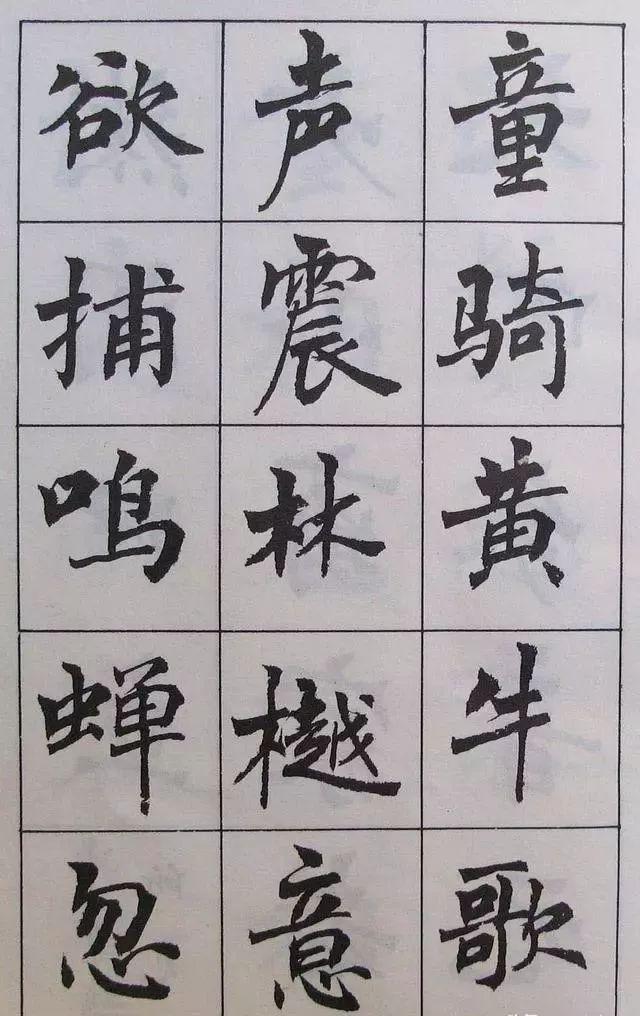 童骑黄牛歌
声震林樾意
欲捕鸣蝉忽